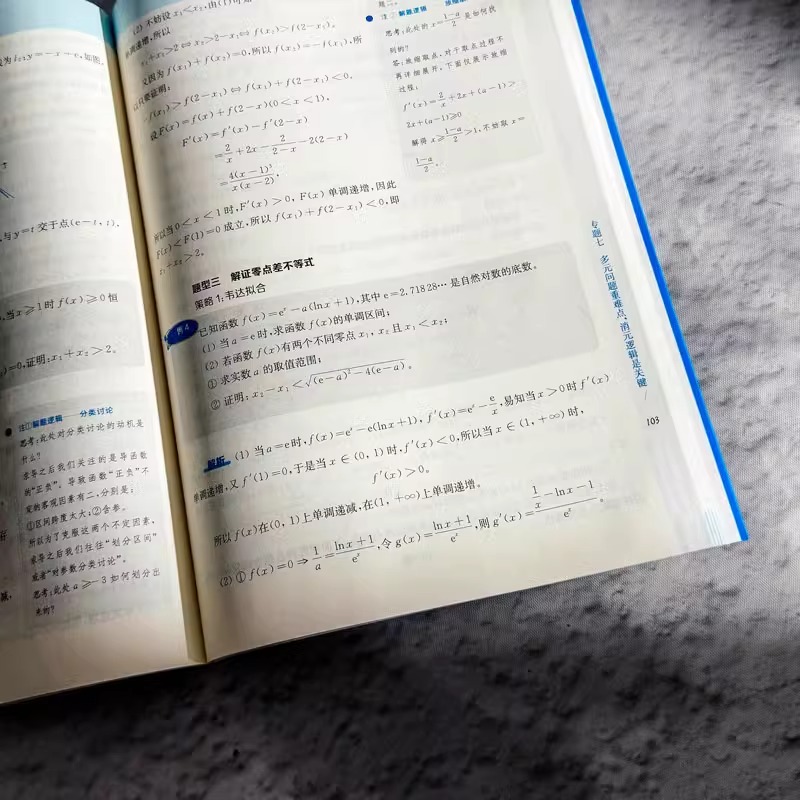 设为 l₂:y=-x+e,如图,
与 y=t 交于点(e-t, t).
当 x≥1 时 f(x)≥0 恒
)=0,证明:x₁+x₂>2。
注①解题逻辑——分类讨论
思考:此处对分类讨论的动机是
什么?
求导之后我们关注的是导函数
的“正负”。导致函数“正负”不
定的客观因素有二,分别是:
①区间跨度太大;②含参。
所以为了克服这两个不定因素,
求导之后我们往往“划分区间”
或者“对参数分类讨论”。
思考:此处 a≥-3 如何划分出
来的?
(2) 不妨设 x₁<x₂,由(1)可知
单调递增,所以
x₁+x₂>2⇔x₂>2-x₁⇔f(x₂)>f(2-x₁)。
又因为 f(x₁)+f(x₂)=0,所以 f(x₂)=-f(x₁),所
以只要证明:
-f(x₁)>f(2-x₁)⇔f(x₁)+f(2-x₁)<0,
设 F(x)=f(x)+f(2-x)(0<x<1),
F′(x)=f′(x)-f′(2-x)
=2/x+2x-2/(2-x)-2(2-x)
=4(x-1)³/(x(x-2)),
所以当 0<x<1 时,F′(x)>0,F(x)单调递增,因此
F(x)<F(1)=0 成立,所以 f(x₁)+f(2-x₁)<0,即
x₁+x₂>2。
注②解题逻辑
思考:此处的 x=(1-a)/2 是如何找
到的?
答:放缩取点,对于取点过程不
再详细展开,下面仅展示放缩
过程:
f′(x)=2/x+2x+(a-1)>
2x+(a-1)≥0
解得 x≥(1-a)/2>1,不妨取 x=
(1-a)/2.
题型三 解证零点差不等式
策略 1:韦达拟合
例 4 已知函数 f(x)=eˣ-a(lnx+1),其中 e=2.718 28…是自然对数的底数。
(1) 当 a=e 时,求函数 f(x)的单调区间;
(2) 若函数 f(x)有两个不同零点 x₁,x₂ 且 x₁<x₂;
① 求实数 a 的取值范围;
② 证明:x₂-x₁<√((e-a)²-4(e-a))。
解析 (1) 当 a=e 时,f(x)=eˣ-e(lnx+1),f′(x)=eˣ-e/x,易知当 x>0 时 f′(x)
单调递增,又 f′(1)=0,于是当 x∈(0, 1)时,f′(x)<0,所以当 x∈(1, +∞)时,
f′(x)>0。
所以 f(x)在(0, 1)上单调递减,在(1, +∞)上单调递增。
(2) ① f(x)=0⇒1/a=(lnx+1)/eˣ,令 g(x)=(lnx+1)/eˣ,则 g′(x)=(1/x-lnx-1)/eˣ。
专题七 多元问题重难点,消元逻辑是关键
103